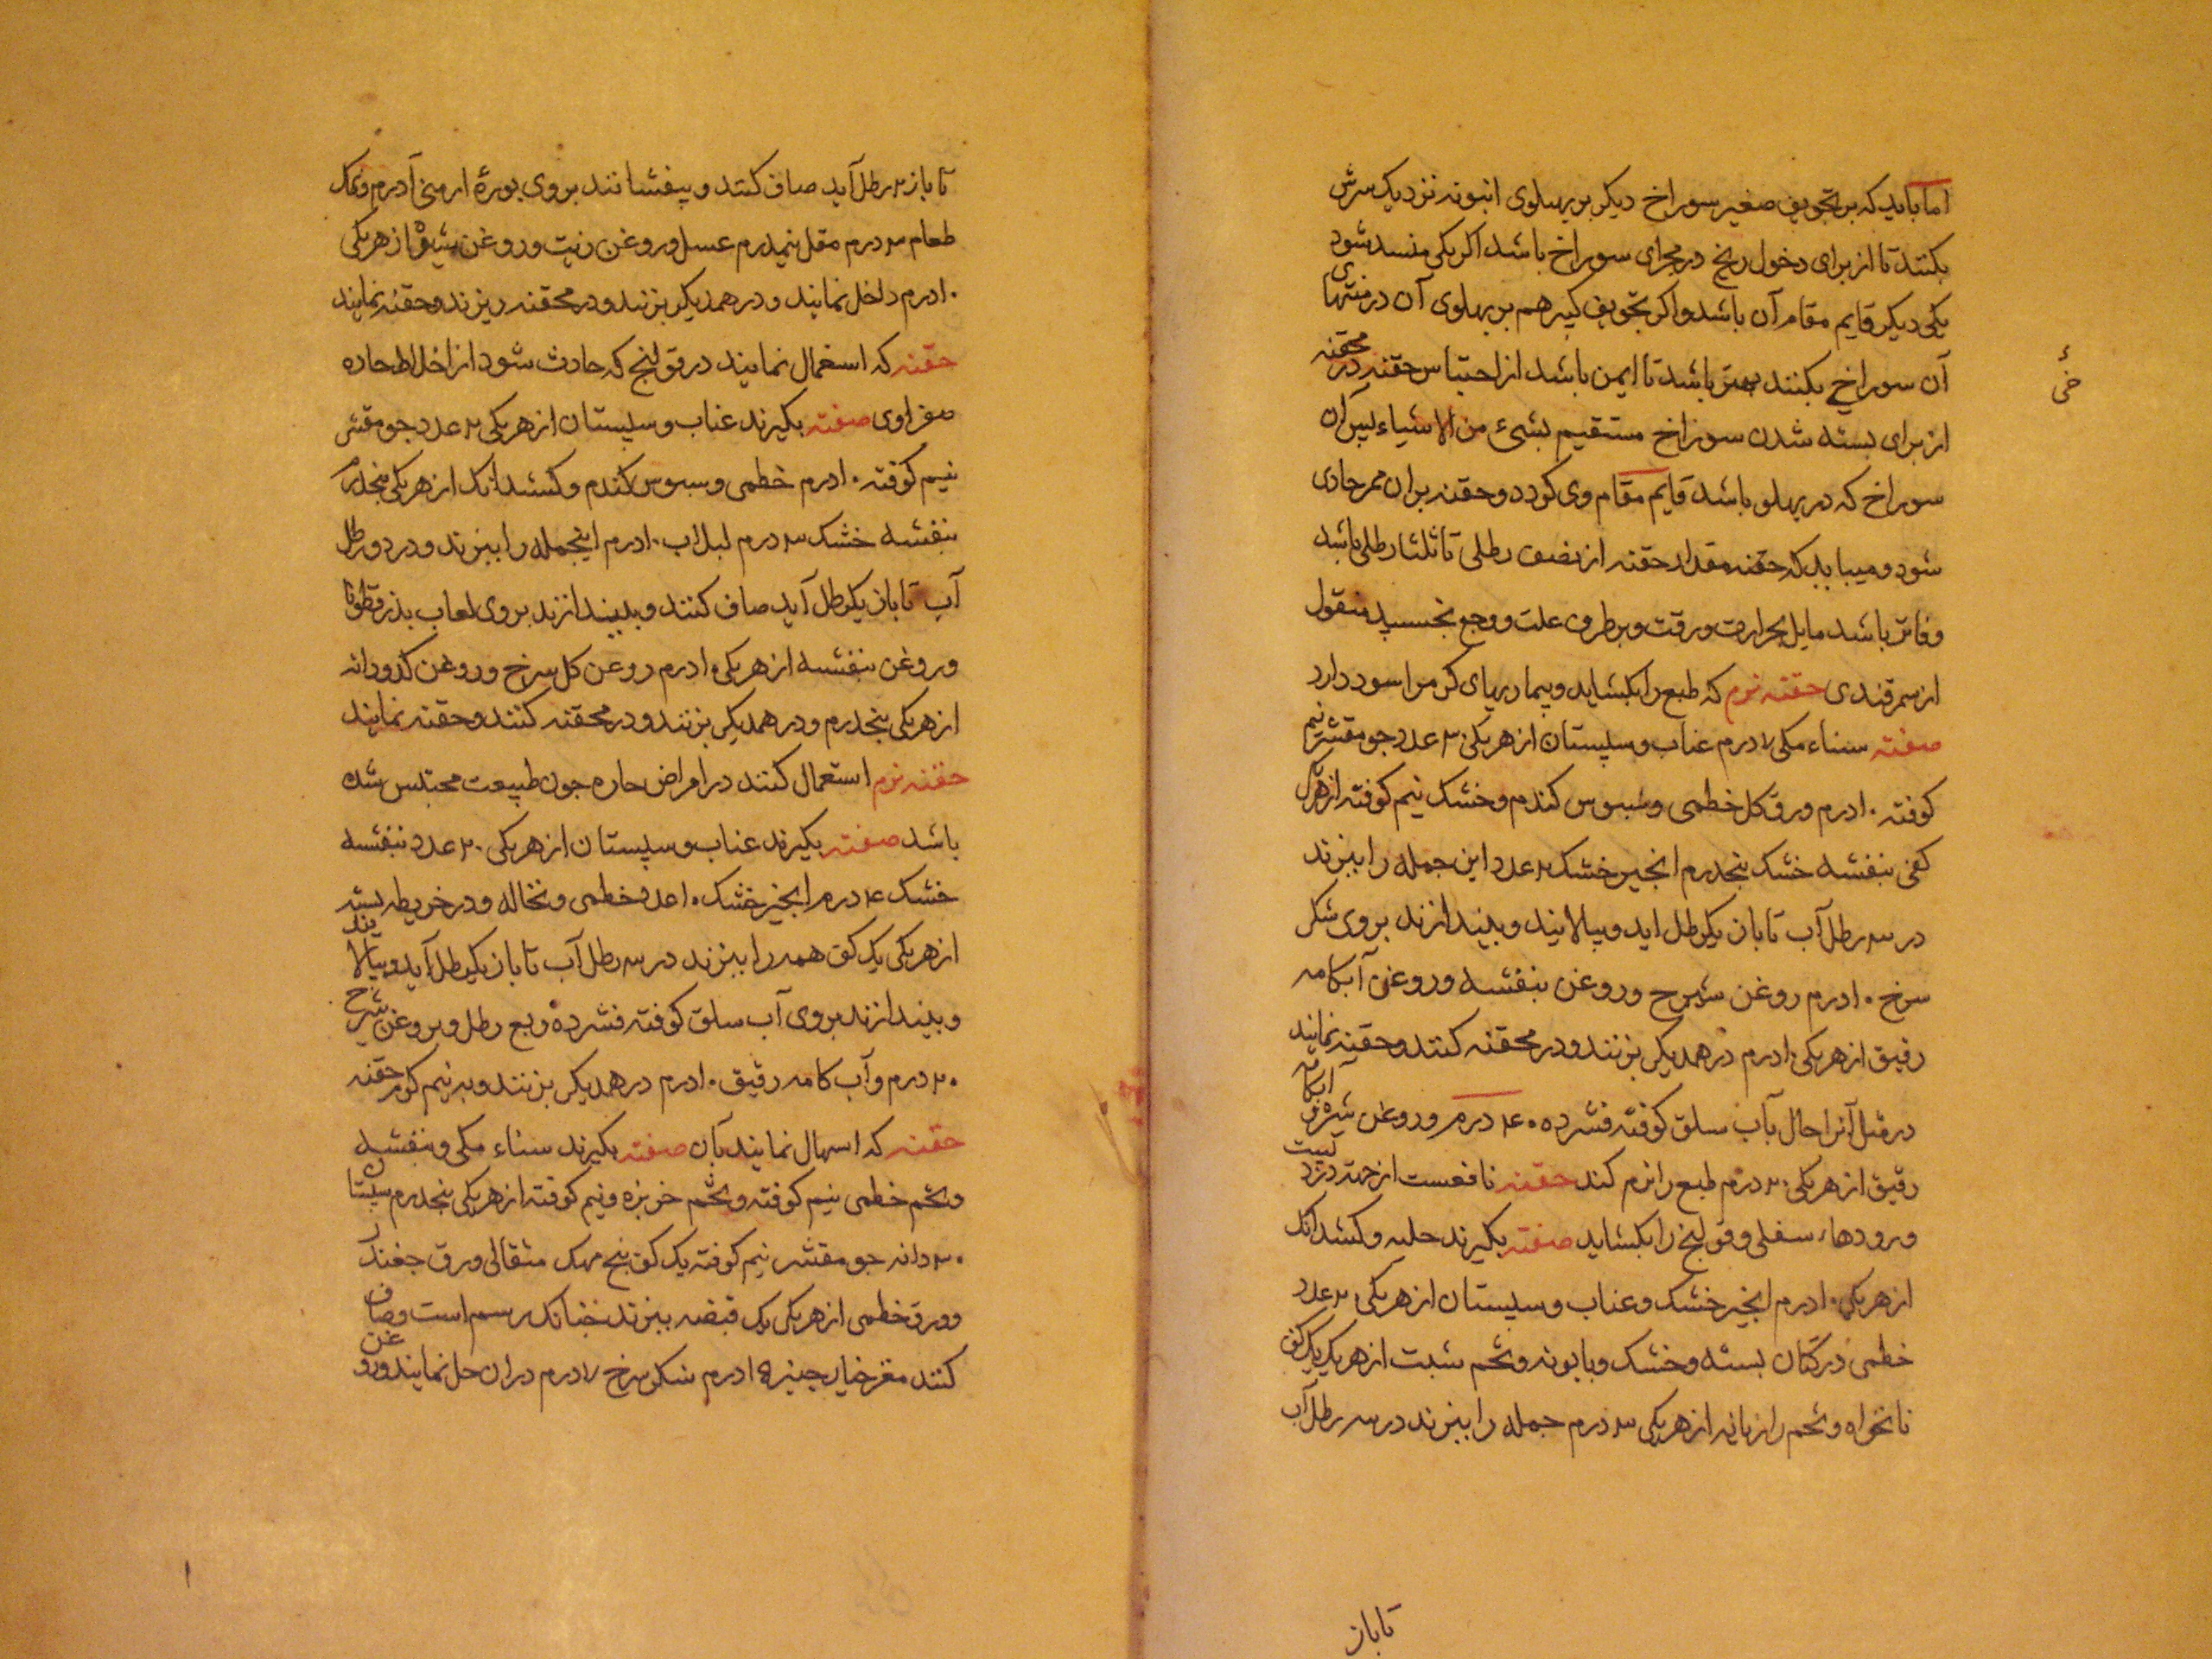 اما باید که بر تجویف صغیر سوراخ دیکر بر پهلوی انبوبه نزدیک سرش
بکنند تا از برای دخول ریح در مجرای سوراخ باشد اکر یکی منسد شود
یکی دیکر قایم مقام آن باشد و اکر تجویف کبیر هم بر پهلوی آن در منتهای
آن سوراخی بکنند بهتر باشد تا ایمن باشد از احتباس حقنه در محقنه
از برای بسته شدن سوراخ مستقیم بشیء من الاشیاء پس آن
سوراخ که در پهلو باشد قایم مقام وی کردد و حقنه بران ممر جاری
شود و میباید که حقنه مقدار حقنه از نصف رطلی تا ثلثا رطلی باشد
و فاتر باشد مایل بحرارت ورقت و بر طرف علت و وجع بخسبد منقول
از سمرقندی حقنه نرم که طبع را بکشاید و بیماریهای کرم را سود دارد
صفته سناء مکی ۷ درم عناب و سپستان از هر یکی ۳۰ عدد جو مقشر نیم
کوفته ۱۰ درم ورق کل خطمی و سبوس کندم و خشک نیم کوفته از هر یکی
کفی بنفشه خشک پنجدرم انجیر خشک ۲۰ عدد این جمله را بپزند
در ۳ رطل آب تا باز یکرطل اید و بپالایند و بیندازند بروی شکر
سرخ ۱۰ درم روغن شیرج و روغن بنفشه و روغن آبکامه
رقیق از هر یکی ۱۰ درم در همدیکر بزنند و در محقنه کنند و حقنه نمایند
در مثل آنرا حال بآب سلق کوفته فشرده ۴۰ درم و روغن شیره و آبکامه
رقیق از هر یکی ۲۰ درم طبع را نرم کند حقنه نافعست از جهة درد پشت
و رودهاء سفلی و قولنج را بکشاید صفته بکیرند حلبه و کشدانک
از هر یکی ۱۰ درم انجیر خشک و عناب و سپستان از هر یکی ۲۰ عدد
خطمی در کتان بسته و خشک و بابونه و تخم شبت از هر یک یک کف
نانخواه و تخم رازیانه از هر یکی ۳ درم جمله را بپزند در سه رطل آب
تا باز
تا باز ۲ رطل آید صاف کنند و بیفشانند بروی بورهٔ ارمنی ۱ درم و نمک
طعام ۳ درم مقل نیمدرم عسل و روغن زیت و روغن شیره از هر یکی
۱۰ درم داخل نمایند و در همدیکر بزنند و در محقنه ریزند و حقنه نمایند
حقنه که استعمال نمایند در قولنج که حادث شود از اخلاط حاده
صفراوی صفته بکیرند عناب و سپستان از هر یکی ۲۰ عدد جو مقشر
نیم کوفته ۱۰ درم خطمی و سبوس کندم و کشدانک از هر یکی پنجدرم
بنفشه خشک ۳ درم لبلاب ۱۰ درم اینجمله را بپزند و در دو رطل
آب تا باز یکرطل آید صاف کنند و بیندازند بروی لعاب بذر قطونا
و روغن بنفشه از هر یکی ۱۰ درم روغن کل سرخ و روغن کدو دانه
از هر یکی پنجدرم و در همدیکر بزنند و در محقنه کنند و حقنه نمایند
حقنه نرم استعمال کنند در امراض حاره جون طبیعت محتبس شده
باشد صفته بکیرند عناب و سپستان از هر یکی ۲۰ عدد بنفشه
خشک ۴ درم انجیر خشک ۱۰ عدد خطمی و نخاله و در خریطه بسته
از هر یکی یک کف همه را بپزند در سه رطل آب تا باز یکرطل آید و بپالایند
و بیندازند بروی آب سلق کوفته فشرده ربع رطل و بروغن شیرج
۲۰ درم و آب کامه رقیق ۱۰ درم در همدیکر بزنند و به نیم کرم حقنه
حقنه که اسهال نمایند بآن صفته بکیرند سناء مکی و بنفشه
و تخم خطمی نیم کوفته و تخم خربزه و نیم کوفته از هر یکی پنجدرم سپستان
۳۰ دانه جو مقشر نیم کوفته یک کف بیخ مهک مثقالی ورق جغندر
و ورق خطمی از هر یکی یک قبضه بپزند جنانک رسم است و صاف
کنند مغز خیار جنبر ۱۵ درم شکر سرخ ۷ درم دران حل نمایند و روغن